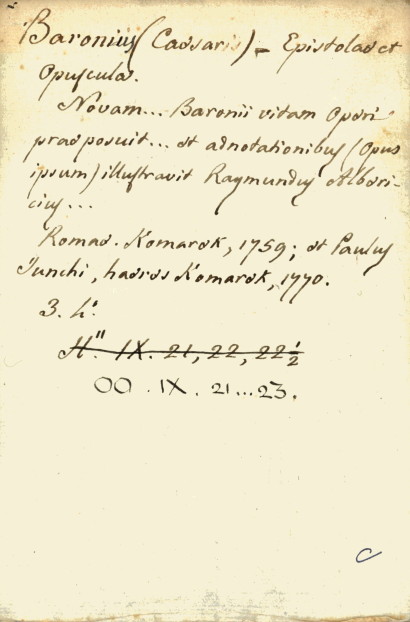 Baronius (Caesaris) - Epistolae et
Opuscula.
Novam... Baronii vitam Operi
praeposuit... et adnotationibus (Opus
ipsum) illustravit Raymundus Alberi-
cius...
Romae. Komarek, 1759; et Paulus
Junchi, haeres Komarek, 1770.
3. 4°.
H". IX. 21, 22, 22 1/2
OO. IX. 21...23.
C